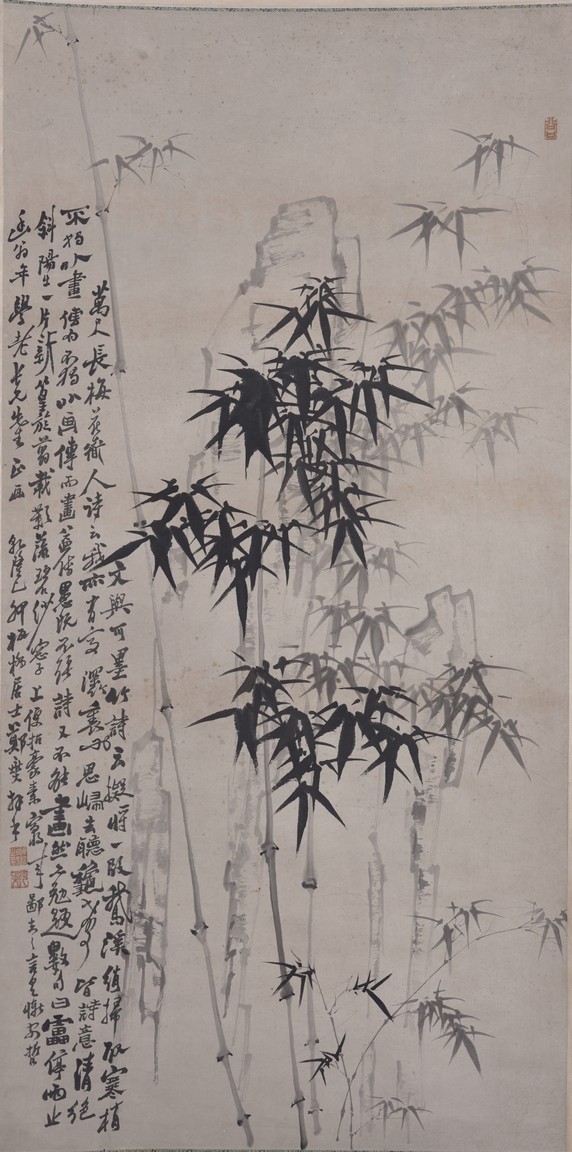 文與可墨竹詩云擬將一段鵝溪絹掃取寒梢
萬尺長梅花道人詩云我亦有亭深竹裏也思歸去聽秋聲皆詩意清絕
不獨以畫傳也不獨以畫傳而畫益傳愚既不能詩又不能畫然亦勉題數句曰雷停雨止
斜陽出一片新篁旋剪裁影落碧紗窗子上便拈毫素寫將來鄙夫之言有慚前哲
年學老長兄先生正畫 乾隆 板橋居士鄭燮拜手